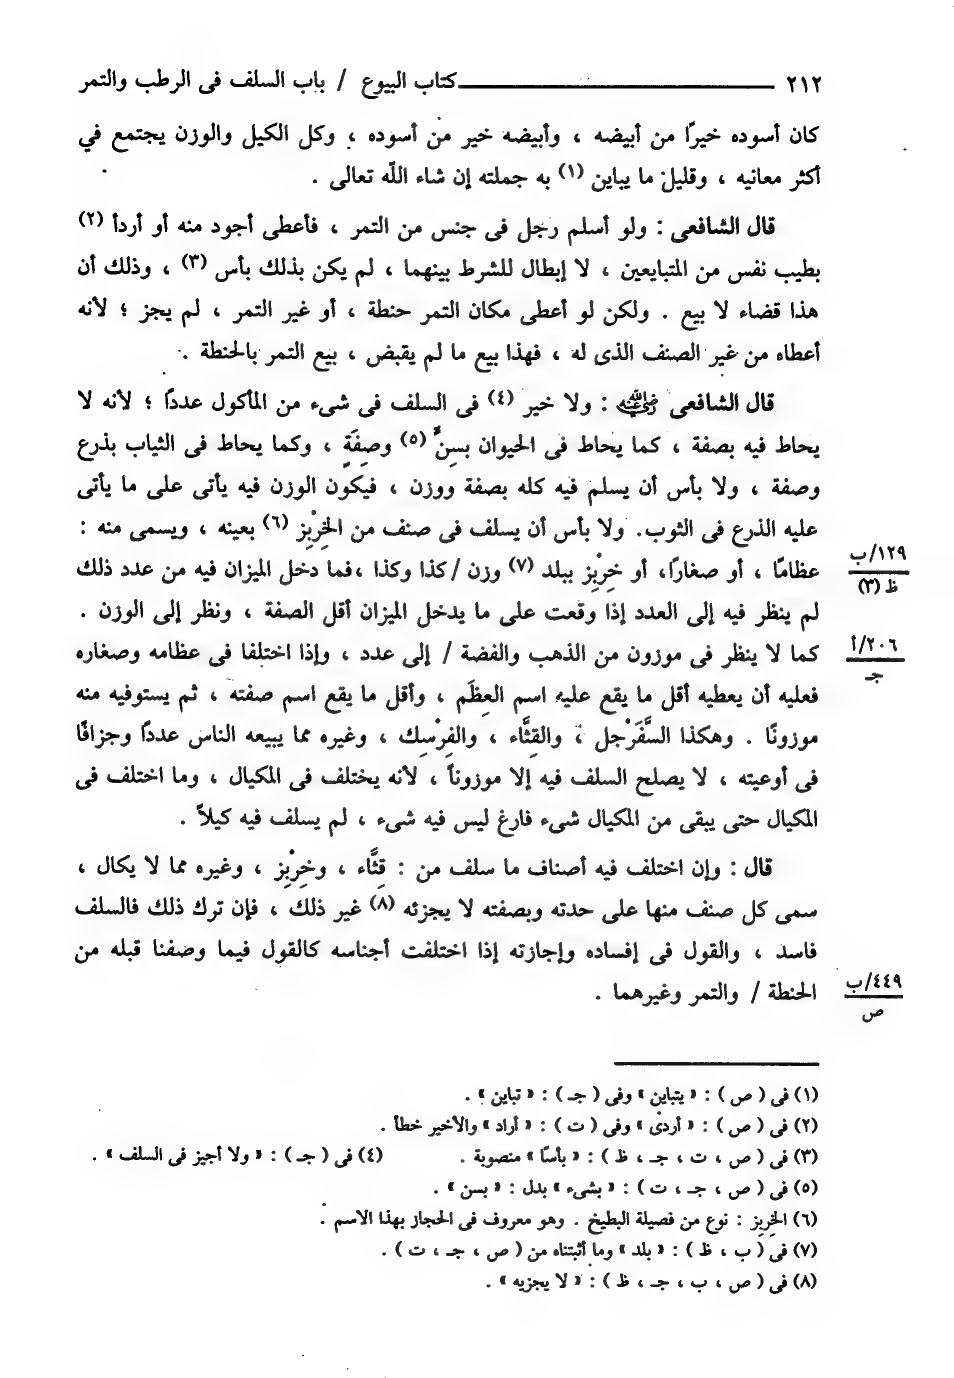 ٢١٢ ــــــــــ كتاب البيوع / باب السلف فى الرطب والتمر
كان أسوده خيرًا من أبيضه ، وأبيضه خير من أسوده ، وكل الكيل والوزن يجتمع في
أكثر معانيه ، وقليل ما يباين (١) به جملته إن شاء اللّه تعالى .
قال الشافعى : ولو أسلم رجل فى جنس من التمر ، فأعطى أجود منه أو أردأ (٢)
بطيب نفس من المتبايعين ، لا إبطال للشرط بينهما ، لم يكن بذلك بأس (٣) ، وذلك أن
هذا قضاء لا بيع . ولكن لو أعطى مكان التمر حنطة ، أو غير التمر ، لم يجز ؛ لأنه
أعطاه من غير الصنف الذى له ، فهذا بيع ما لم يقبض ، بيع التمر بالحنطة .
قال الشافعى رضي الله عنه : ولا خير (٤) فى السلف فى شىء من المأكول عددًا ؛ لأنه لا
يحاط فيه بصفة ، كما يحاط فى الحيوان بسِنٍّ (٥) وصِفَةٍ ، وكما يحاط فى الثياب بذرع
وصفة ، ولا بأس أن يسلم فيه كله بصفة ووزن ، فيكون الوزن فيه يأتى على ما يأتى
عليه الذرع فى الثوب. ولا بأس أن يسلف فى صنف من الخِرْبِز (٦) بعينه ، ويسمى منه :
١٢٩/ب
عظامًا ، أو صغارًا، أو خِرْبِز ببلد (٧) وزن / كذا وكذا ،فما دخل الميزان فيه من عدد ذلك
ظ (٣)
لم ينظر فيه إلى العدد إذا وقعت على ما يدخل الميزان أقل الصفة ، ونظر إلى الوزن .
٢٠٦/أ
كما لا ينظر فى موزون من الذهب والفضة / إلى عدد ، وإذا اختلفا فى عظامه وصغاره
جـ
فعليه أن يعطيه أقل ما يقع عليه اسم العِظَم ، وأقل ما يقع اسم صفته ، ثم يستوفيه منه
موزونًا . وهكذا السَّفَرْجل ، والقثَّاء ، والفِرْسِك ، وغيره مما يبيعه الناس عددًا وجزافًا
فى أوعيته ، لا يصلح السلف فيه إلا موزوناً ، لأنه يختلف فى المكيال ، وما اختلف فى
المكيال حتى يبقى من المكيال شىء فارغ ليس فيه شىء ، لم يسلف فيه كيلاً .
قال : وإن اختلف فيه أصناف ما سلف من : قِثَّاء ، وخِرْبِز ، وغيره مما لا يكال ،
سمى كل صنف منها على حدته وبصفته لا يجزئه (٨) غير ذلك ، فإن ترك ذلك فالسلف
فاسد ، والقول فى إفساده وإجازته إذا اختلفت أجناسه كالقول فيما وصفنا قبله من
٤٤٩/ب
الحنطة / والتمر وغيرهما .
ص
(١) فى ( ص ) : « يتباين » وفى ( جـ ) : « تباين » .
(٢) فى ( ص ) : « أردئ » وفى ( ت ) : « أراد » والأخير خطأ .
(٣) فى ( ص ، ت ، جـ ، ظ ) : « بأسًا » منصوبة . (٤) فى ( جـ ) : « ولا أجيز فى السلف » .
(٥) فى ( ص ، جـ ، ت ) : « بشىء » بدل : « بسن » .
(٦) الخِرْبِز : نوع من فصيلة البطيخ . وهو معروف فى الحجاز بهذا الاسم .
(٧) فى ( ب ، ظ ) : « بلد » وما أثبتناه من ( ص ، جـ ، ت ) .
(٨) فى ( ص ، ب ، جـ ، ظ ) : « لا يجزيه » .